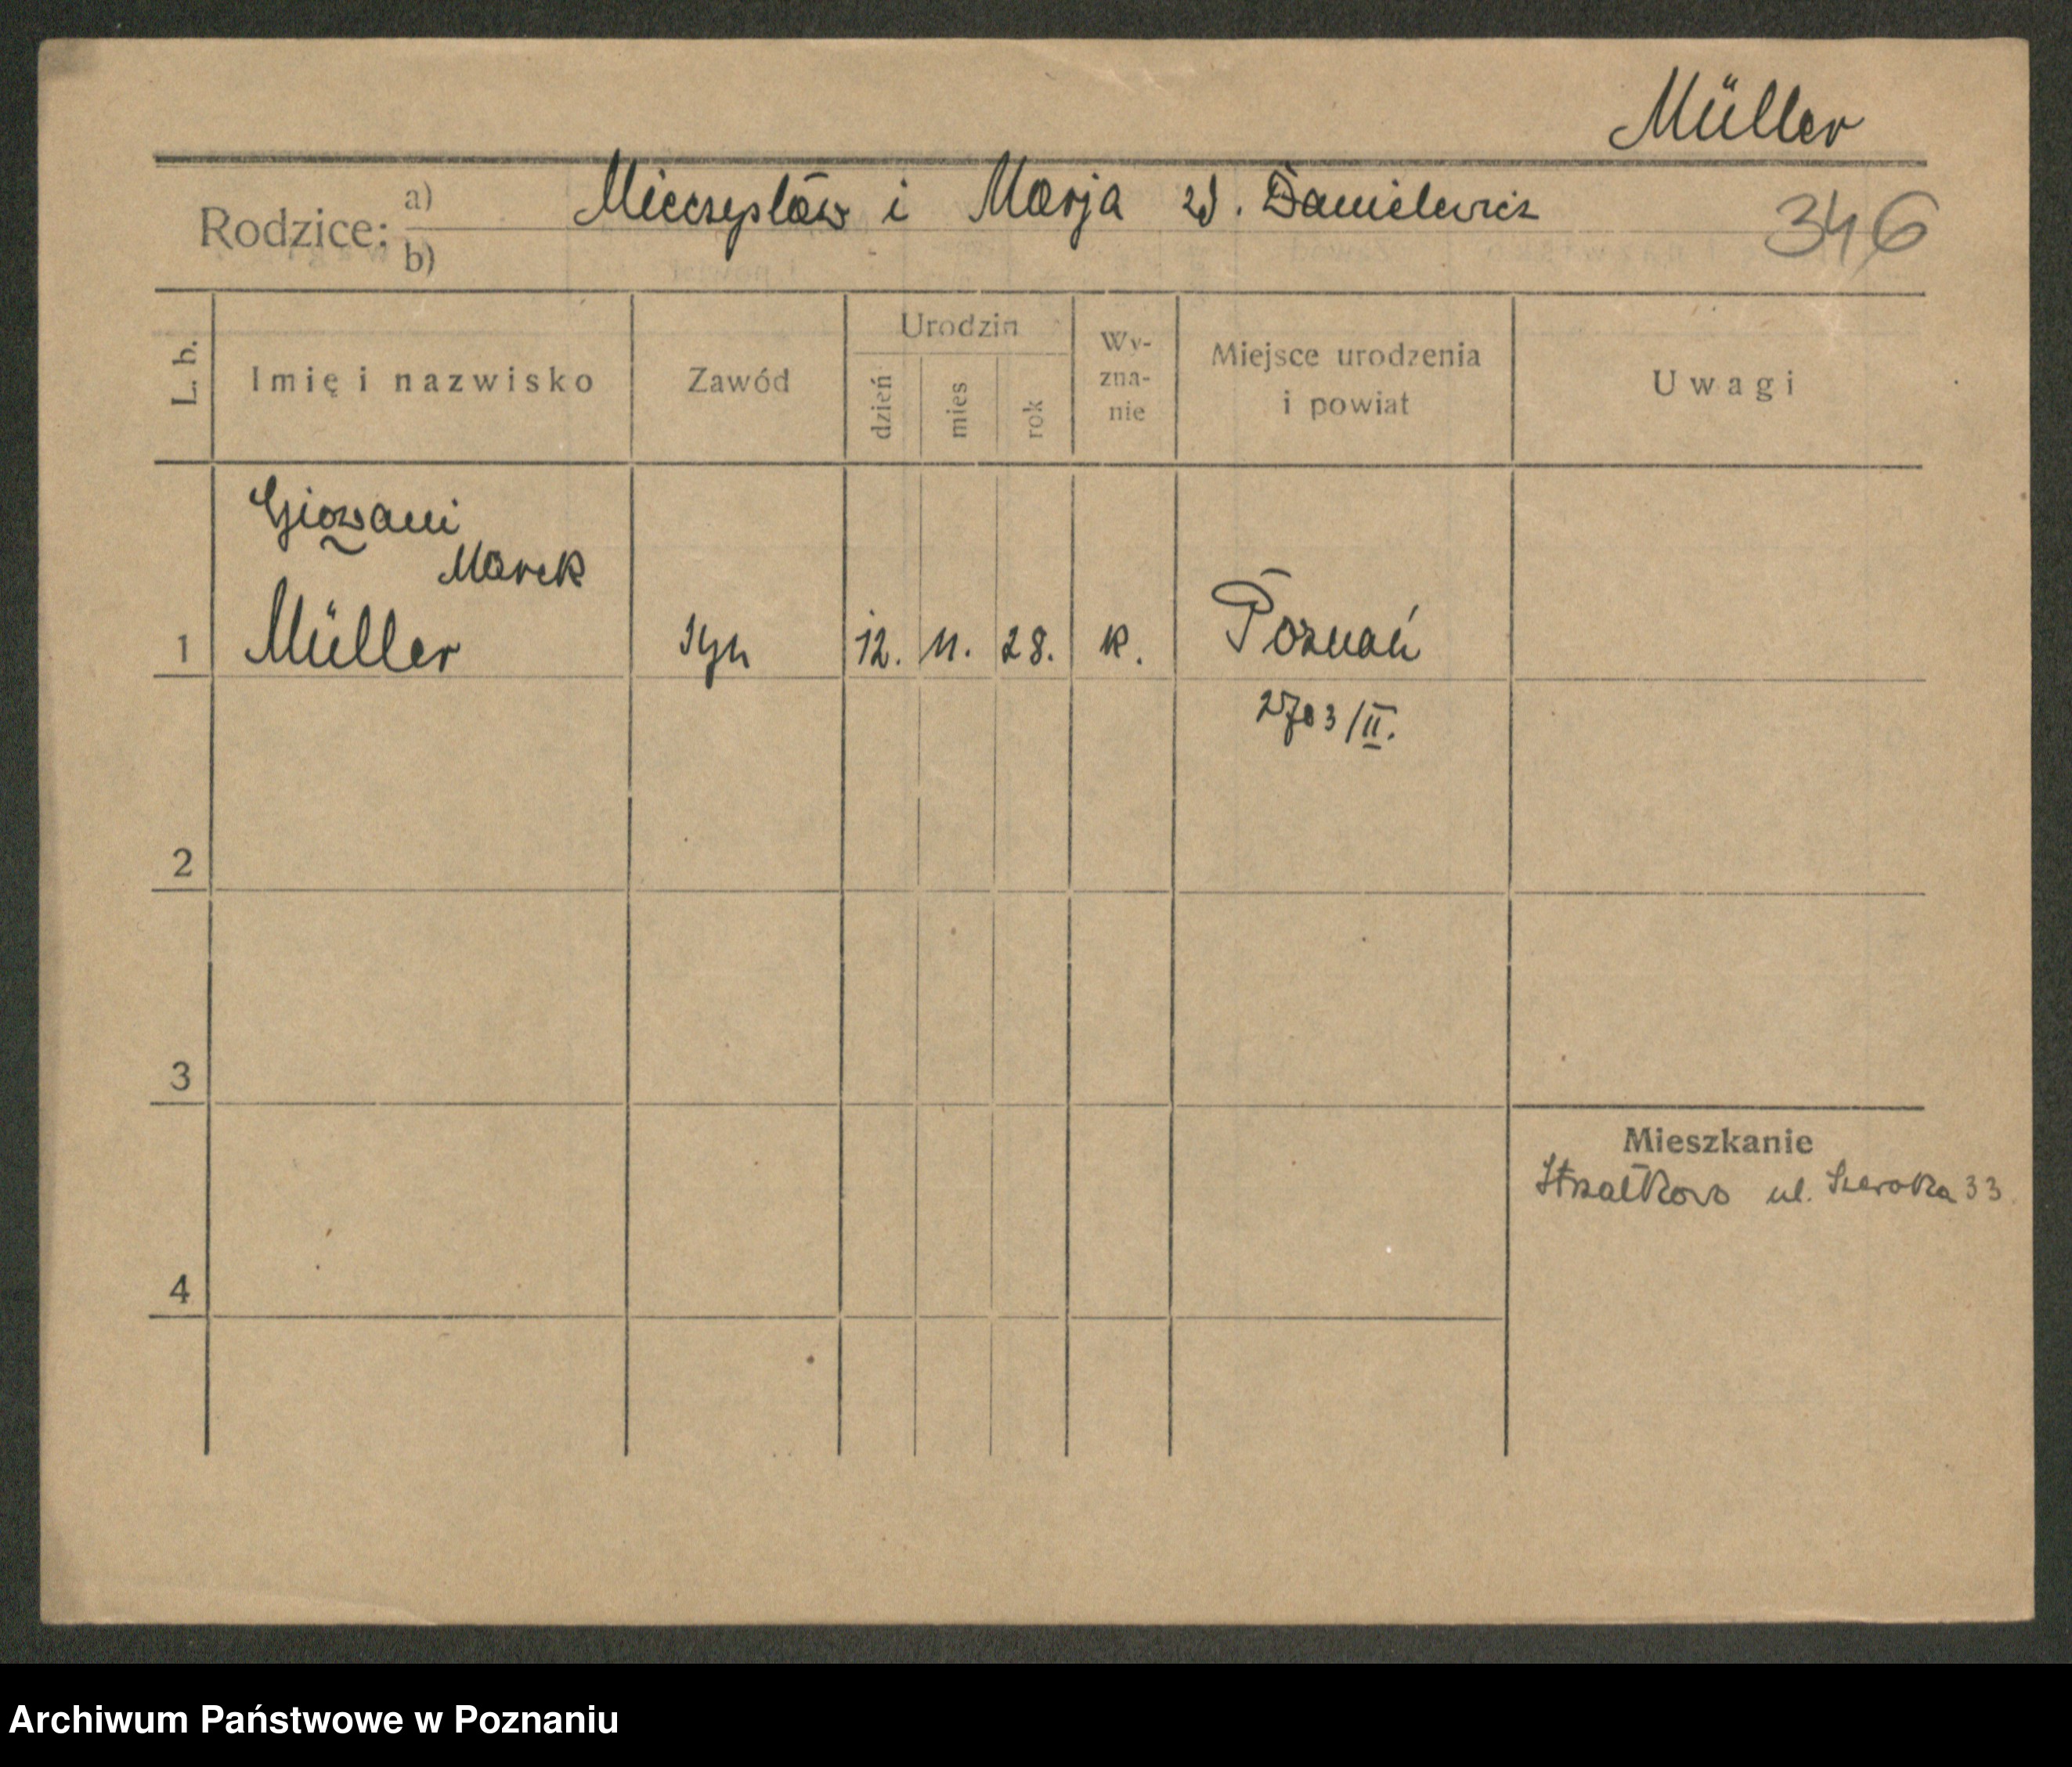 Müller
Rodzice: a) Mieczysław i Marja zd. Danielewicz
b)
346
L. b.
Imię i nazwisko
Zawód
Urodzin
dzień
mies
rok
Wy-
zna-
nie
Miejsce urodzenia
i powiat
Uwagi
Giovani
Marek
1 Müller Syn 12. 11. 28. k. Poznań
2703/II.
2
3
Mieszkanie
Strzałkowo ul. Szeroka 33.
4
Archiwum Państwowe w Poznaniu